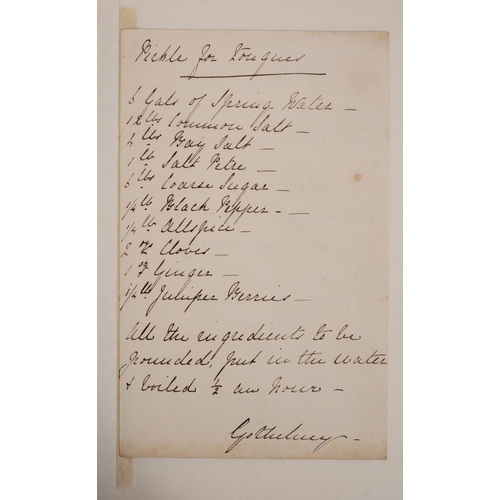 Pickle for Tongues
6 Gals of Spring Water —
12 lbs Common Salt —
4 lbs Bay Salt —
1 lb Salt Petre —
6 lbs Coarse Sugar —
1/4 lb Black Pepper —
1/4 lb Allspice —
2 oz Cloves —
1 oz Ginger —
1/4 lb Juniper Berries —
All the ingredients to be
grounded, put in the water
& boiled 1/2 an hour —